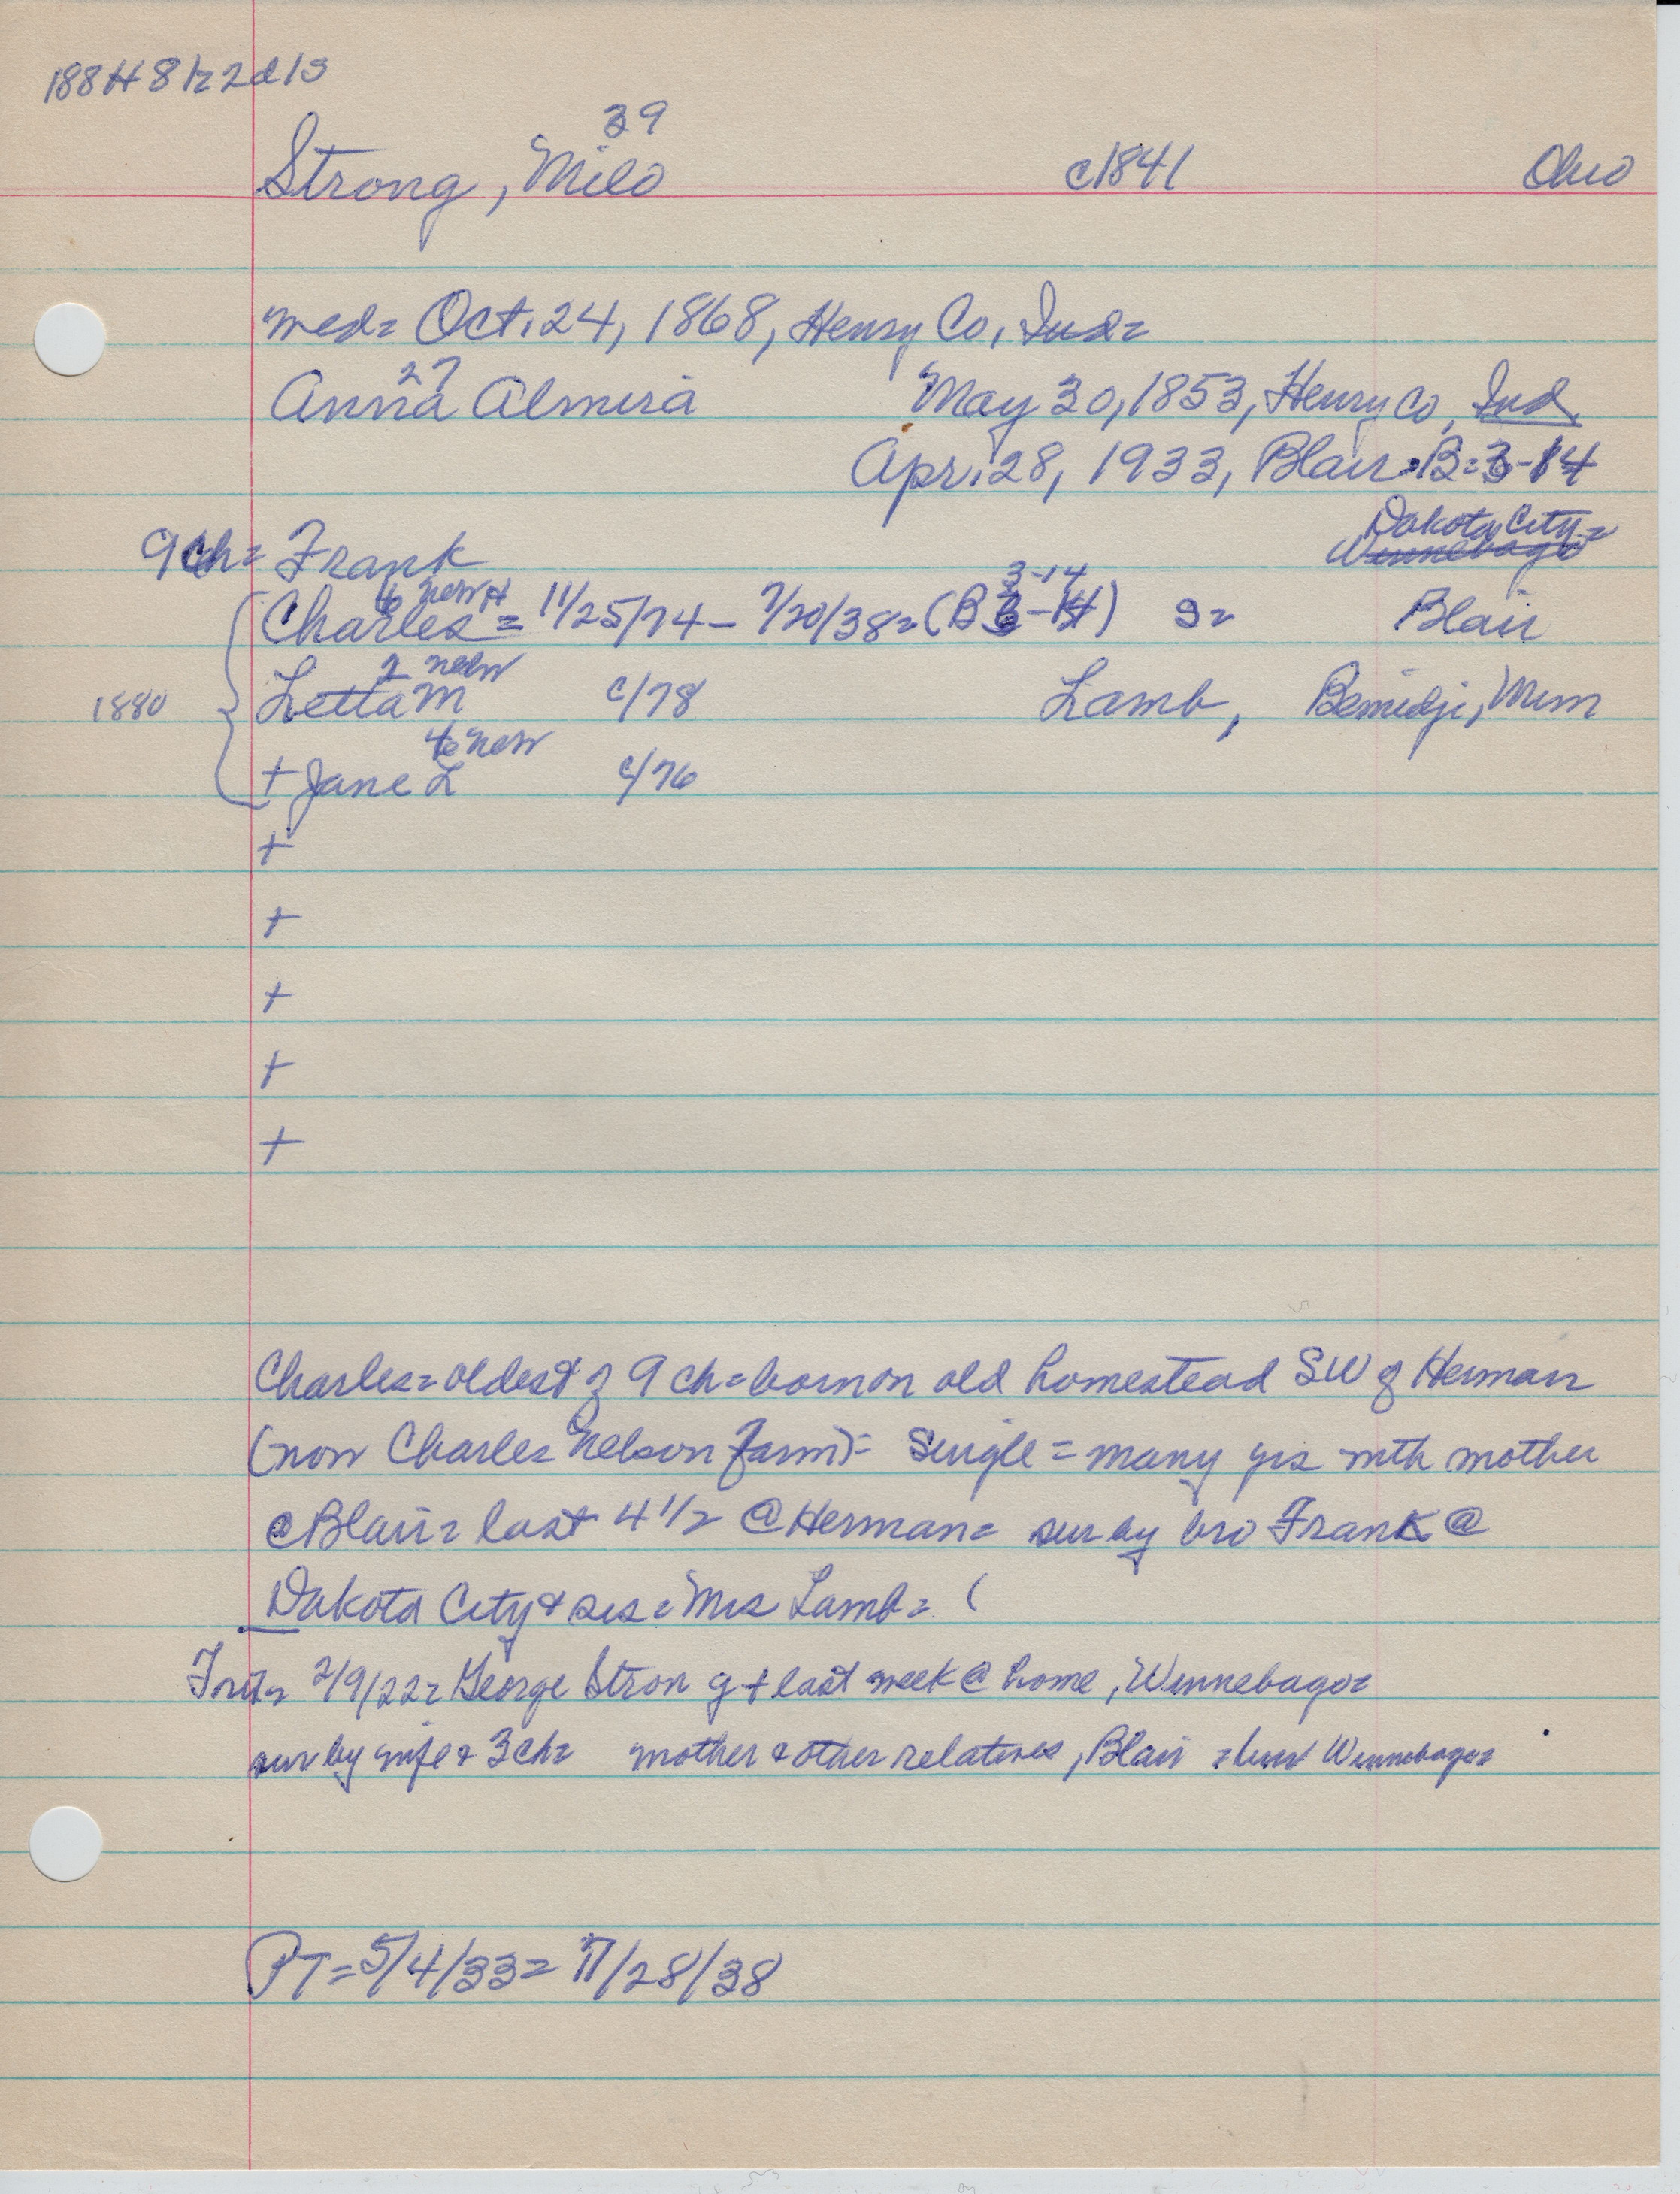 39
Strong, Milo c1841 Ohio
med= Oct. 24, 1868, Henry Co, Ind=
27
Anna Almira May 30, 1853, Henry Co, Ind
Apr. 28, 1933, Blair=B=3-14
Dakota City=
9ch= Frank Winnebago
6 New 3-14
Charles= 11/25/74- 7/20/38=(B ) S= Blair
2 Nebr
Letta M c/78 Lamb, Bemidji, Minn
1880
4 New
+ Jane L c/76
+
+
+
+
+
Charles=oldest of 9 ch=born on old homestead SW of Herman
(now Charles Nelson farm)= Single=many yrs with mother
@Blair= last 4 1/2 @Herman= sur by bro Frank @
Dakota City & sis=Mrs Lamb= (
2/9/22= George Strong + last week @ home, Winnebago=
sur by wife & 3ch= mother & other relatives, Blair = Winnebago=
PT=5/4/33= 7/28/38